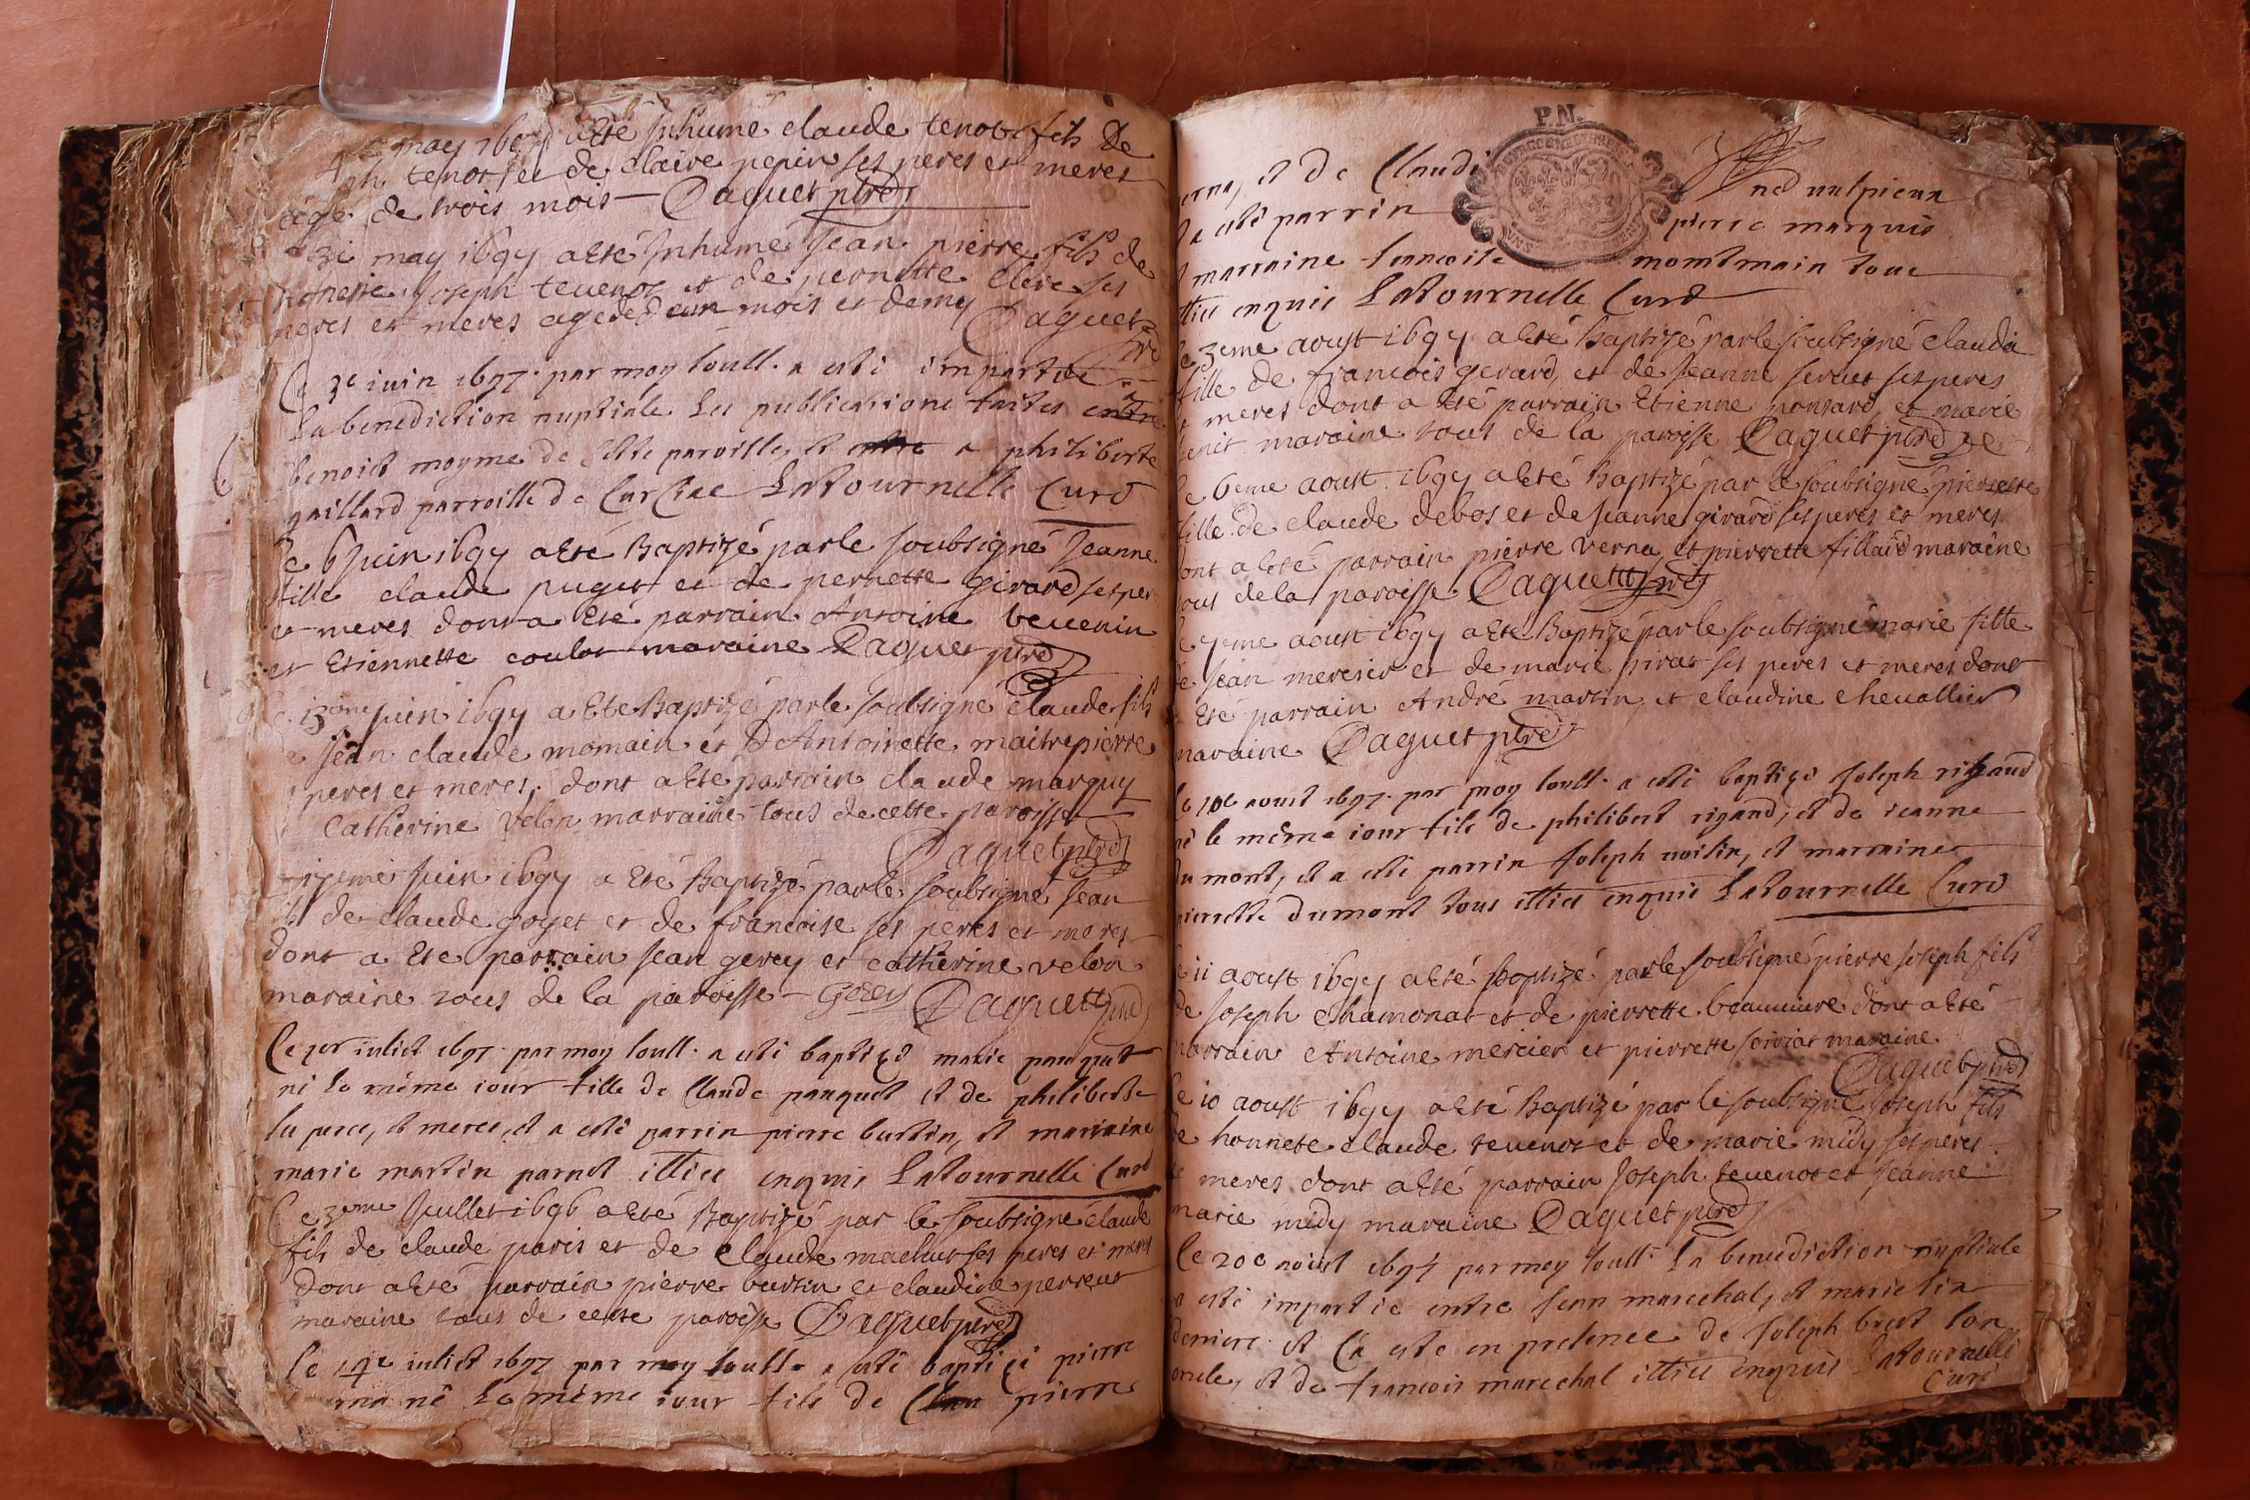 may 1697 a Eté Inhumé claude tenot fils de
tenot et de claire pepin ses peres et meres
agé de trois mois Daguet ptre
31 may 1697 a Eté Inhumé Jean pierre fils de
honeste Joseph tevenot et de pernette clere ses
peres et meres agé de un mois et demy Daguet
ptre
Ce 3e iuin 1697 par moy soull. a esté impartie
la benediction nuptiale les publications faites entre
benoict moyme de cette parroisse et a philiberte
gaillard parroisse de Curciat LaTournelle Curé
le 6 Juin 1697 a Eté Baptizé parle soubsigné Jeanne
fille claude puget et de pernette girard ses per
et meres dont a Eté parrain Antoine tevenin
et Etiennette coulon maraine Daguet ptre
13eme Juin 1697 a Eté Baptizé parle soubsigné claude fils
Jean claude momain et D Antoinette maitrepierre
peres et meres, dont a Eté parrain claude marquy
Catherine velon marraine tous de cette paroisse
Daguet ptre
17eme Juin 1697 a Eté Baptizé parle soubsigné Jean
fils de claude goyet et de francoise ses peres et meres
dont a Ete parrain Jean gerey et catherine velon
maraine tous de la paroisse Daguet ptre
Ce 1er iuliet 1697 par moy soull. a esté baptizé marie panquet
né le même iour fille de Claude panquet et de philiberte
ses peres, et meres, et a esté parrin pierre bustin, et marraine
marie martin parnet illies enquis LaTournelle Curé
Ce 3eme Juillet 1696 a eté Baptizé par le soubsigné claude
fils de claude paris et de claude machut ses peres et meres
dont a Eté parrain pierre bustin et claudine perreut
maraine tous de cette paroisse Daguet ptre
le 14e iuliet 1697 par moy soull. a esté baptizé pierre
né le même iour fils de pierre
et de Claudi
a esté parrin pierre marquis
marraine francoise momtmain tous
illies enquis LaTournelle Curé
le 3eme aoust 1697 a Eté Baptizé parle soubsigné claudi
fille de francois gerard, et de Jeanne servet ses peres
meres dont a Eté parrain Etienne ponsard, et marie
maraine tous de la paroisse Daguet ptre
le 6eme aoust 1697 a Eté Baptizé par le soubsigné pierrette
fille de claude debos et de Jeanne girard ses peres et meres
dont a Eté parrain pierre verna, et pierrette fillard maraine
tous de la paroisse Daguet ptre
le 7eme aoust 1697 a Eté Baptizé parle soubsigné marie fille
de Jean mercier et de marie pirat ses peres et meres dont
Eté parrain André martin, et claudine chevallier
maraine Daguet ptre
le 10e aoust 1697 par moy soull. a esté baptizé Joseph rigaud
né le même iour fils de philibert rigaud, et de ieanne
du mont, et a esté parrin Joseph voisin, et marraine
pierrette dumont tous illies enquis LaTournelle Curé
le 11 aoust 1697 a Eté Baptizé parle soubsigné pierre Joseph fils
de Joseph chamonat et de pierrette beaumiere dont a Eté
parrain Antoine mercier et pierrette soivat maraine
Daguet ptre
le 10 aoust 1697 a Eté Baptizé par le soubsigné Joseph fils
de honnete claude tevenot et de marie midy ses peres
meres dont a Eté parrain Joseph tevenot et Jeanne
marie midy maraine Daguet ptre
le 20e aoust 1697 par moy soull. La benediction nuptiale
a esté impartie entre Jean marechal, et marie
et ce a este en presence de Joseph son
oncle, et de francois marechal illies enquis LaTournelle
Curé
P.N.